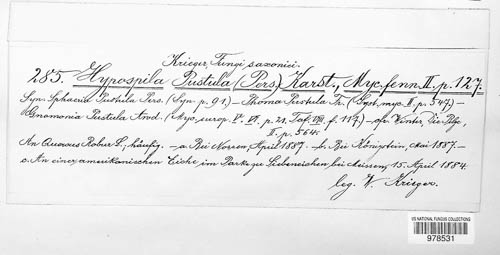 Krieger, Fungi saxonici.
285. Hypospila Pustula (Pers.) Karst., Myc. fenn. II. p. 127.
Syn. Sphaeria Pustula Pers. (Syn. p. 91.) – Phoma Pustula Fr. (Syst. myc. II. p. 547.) –
Gnomonia Pustula Awd. (Myc. europ. V. VI. p. 21, Taf. VIII. f. 117.) – cfr. Winter, Die Pilze,
II. p. 564.
An Quercus Robur L., häufig. – a. Bei Nossen, April 1887. – b. Bei Königstein, Mai 1887. –
c. An einer amerikanischen Eiche im Parke zu Siebeneichen bei Meissen, 15. April 1884.
leg. W. Krieger.
US NATIONAL FUNGUS COLLECTIONS
978531